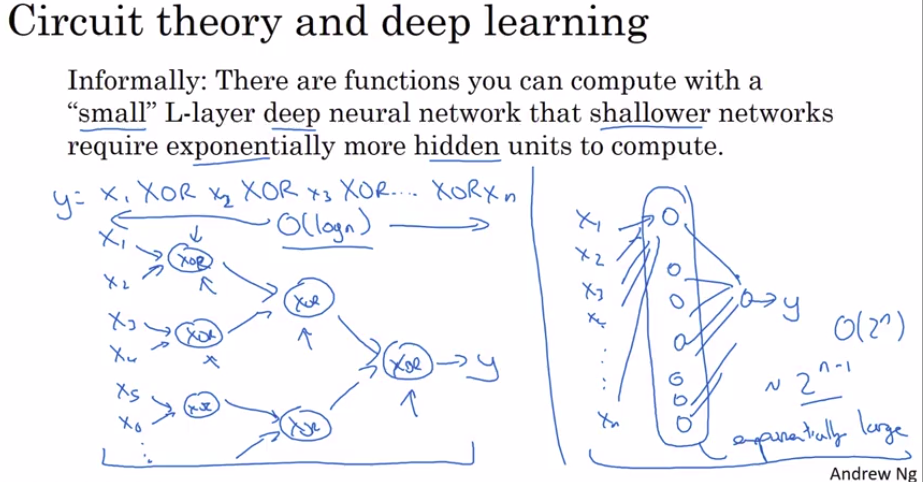 Circuit theory and deep learning
Informally: There are functions you can compute with a
“small” L-layer deep neural network that shallower networks
require exponentially more hidden units to compute.
y= x₁ XOR x₂ XOR x₃ XOR.... XOR xₙ
O(log n)
x₁
XOR
x₂
XOR
x₃
XOR
x₄
XOR → y
x₅
XOR
x₆
XOR
⋮
x₁
x₂
x₃
x₄
⋮
xₙ
→ y
O(2ⁿ)
~ 2ⁿ⁻¹
exponentially large
Andrew Ng